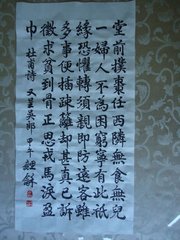 堂前撲棗任西隣無食無兒
一婦人不為困窮寧有此祗
緣恐懼轉須親即防遠客雖
多事便插疎籬却甚真已訴
徵求貧到骨正思戎馬淚盈
巾 杜甫詩 又呈吳郎 甲午